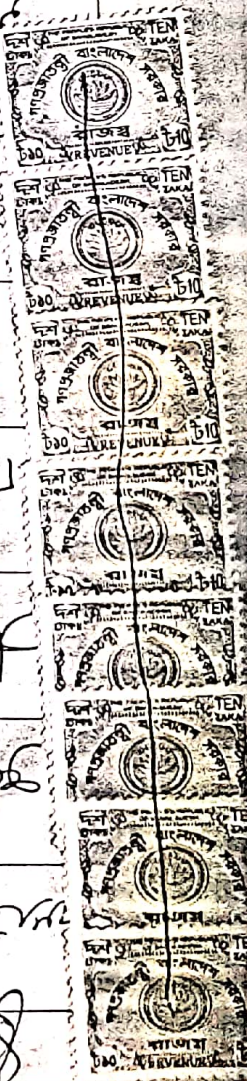 দশ টাকা TEN TAKA
গণপ্রজাতন্ত্রী বাংলাদেশ সরকার
রাজস্ব
৳১০ REVENUE ৳10
দশ টাকা TEN TAKA
গণপ্রজাতন্ত্রী বাংলাদেশ সরকার
রাজস্ব
৳১০ REVENUE ৳10
দশ টাকা TEN TAKA
গণপ্রজাতন্ত্রী বাংলাদেশ সরকার
রাজস্ব
৳১০ REVENUE ৳10
দশ টাকা TEN TAKA
গণপ্রজাতন্ত্রী বাংলাদেশ সরকার
রাজস্ব
৳10
দশ টাকা TEN TAKA
গণপ্রজাতন্ত্রী বাংলাদেশ সরকার
দশ টাকা TEN TAKA
গণপ্রজাতন্ত্রী বাংলাদেশ সরকার
দশ টাকা TE
গণপ্রজাতন্ত্রী বাংলাদেশ সরকার
রাজস্ব
দশ টাকা TE
গণপ্রজাতন্ত্রী বাংলাদেশ সরকার
রাজস্ব
৳১০ REVENUE